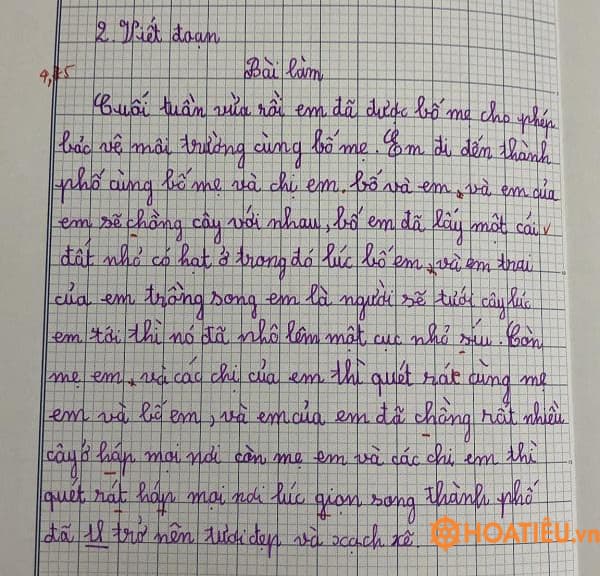 2. Viết đoạn
Bài làm
9,75
Cuối tuần vừa rồi em đã được bố mẹ cho phép
bảo vệ môi trường cùng bố mẹ. Em đi đến thành
phố cùng bố mẹ và chị em. bố và em, và em của
em sẽ chồng cây với nhau, bố em đã lấy một cái
đất nhỏ có hạt ở trong đó lúc bố em, và em trai
của em trồng song em là người sẽ tưới cây lúc
em tới thì nó đã nhô lên một cục nhỏ síu. Còn
mẹ em, và các chị của em thì quét rát cùng mẹ
em và bố em, và em của em đã chồng rất nhiều
cây ở háp mọi nơi còn mẹ em và các chị em thì
quét rát háp mọi nơi lúc gion song thành phố
đã trở nên tươi đẹp và xạch xẽ.
HOATIÊU.vn